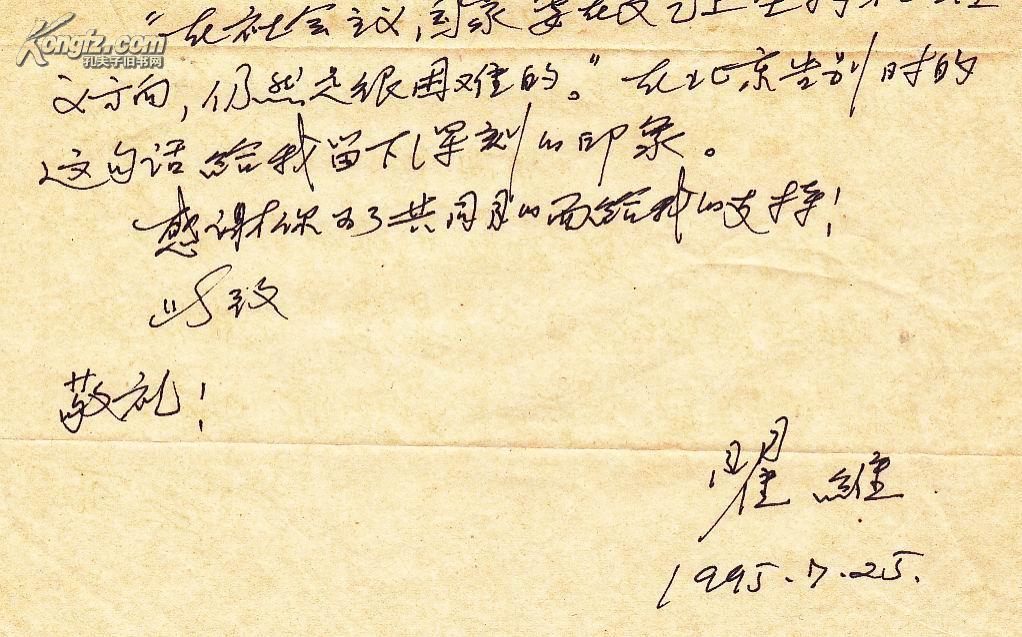 Kongfz.com
孔夫子旧书网
"在社会主义国家要在文艺上坚持
义方向，仍然是很困难的。"在北京告别时的
这句话给我留下深刻的印象。
感谢你为了共同目的而给我的支持！
此致
敬礼！
瞿維
1995.7.25.